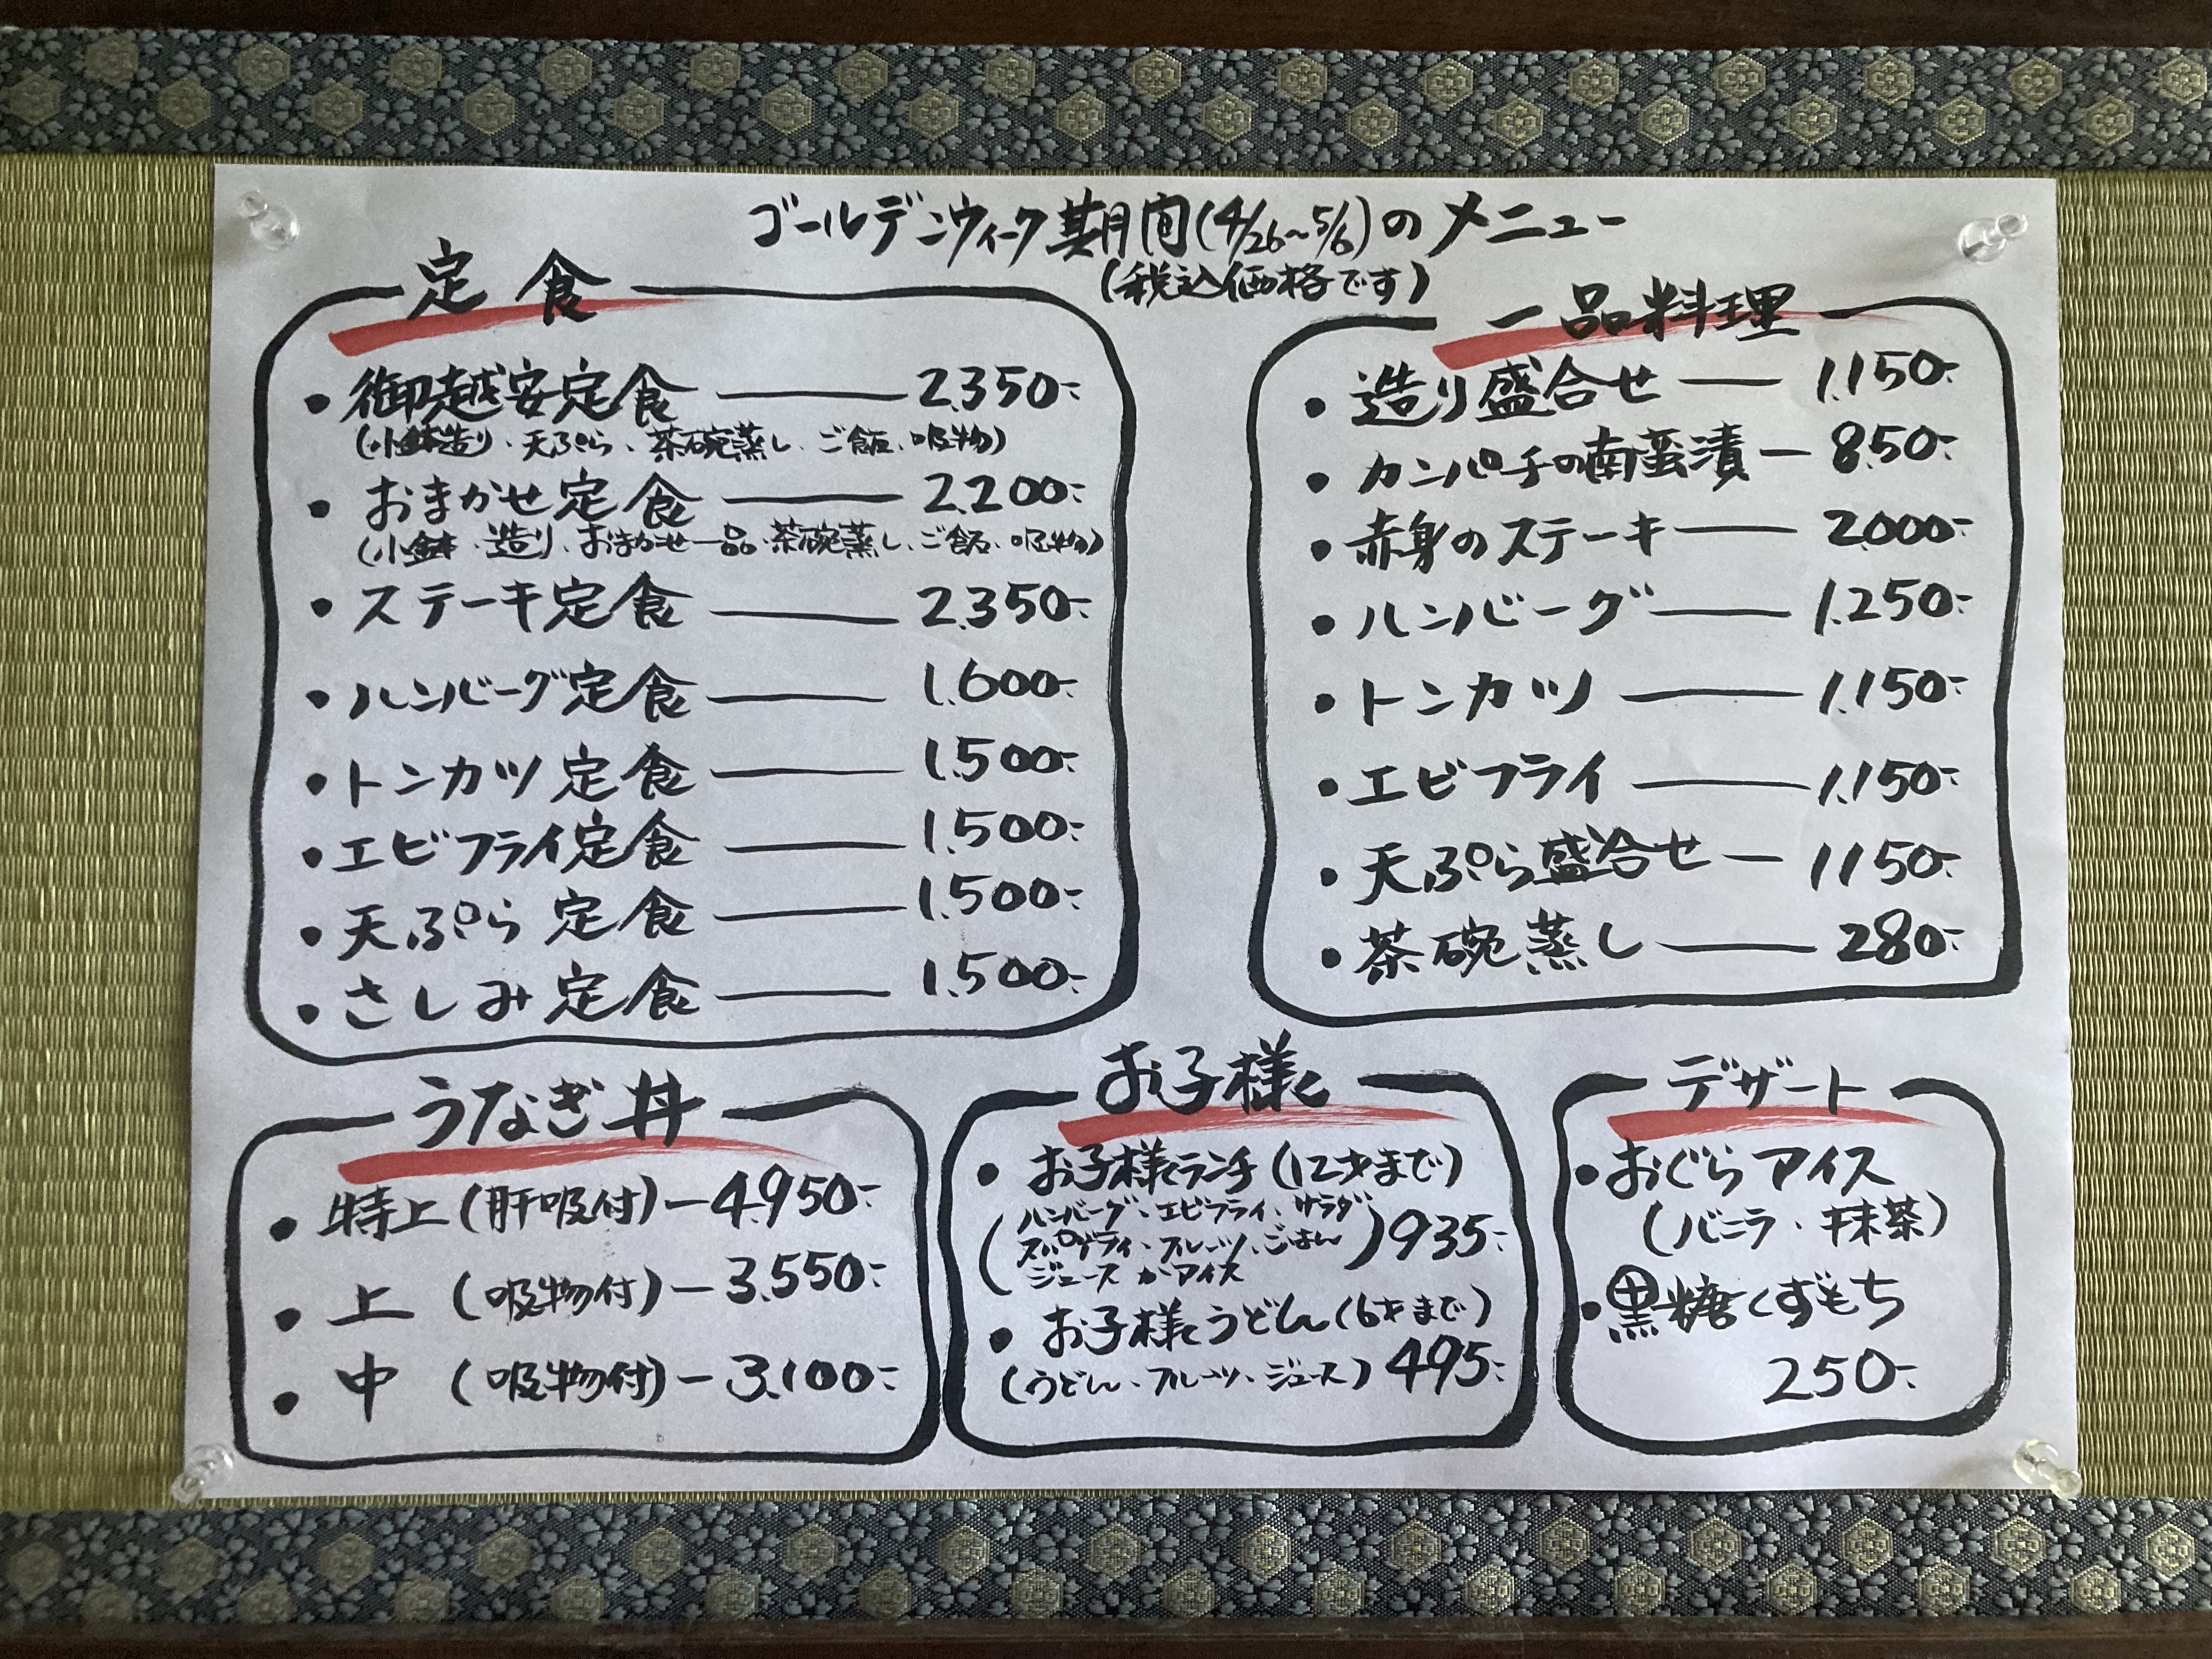 ゴールデンウィーク期間(4/26～5/6)のメニュー
(税込価格です)
定食
・御越安定食 ― 2,350-
(小鉢、造り、天ぷら、茶碗蒸し、ご飯、吸物)
・おまかせ定食 ― 2,200-
(小鉢、造り、おまかせ一品、茶碗蒸し、ご飯、吸物)
・ステーキ定食 ― 2,350-
・ハンバーグ定食 ― 1,600-
・トンカツ定食 ― 1,500-
・エビフライ定食 ― 1,500-
・天ぷら定食 ― 1,500-
・さしみ定食 ― 1,500-
一品料理
・造り盛合せ ― 1,150-
・カンパチの南蛮漬 ― 850-
・赤身のステーキ ― 2,000-
・ハンバーグ ― 1,250-
・トンカツ ― 1,150-
・エビフライ ― 1,150-
・天ぷら盛合せ ― 1150-
・茶碗蒸し ― 280-
うなぎ丼
・特上(肝吸付) ― 4,950-
・上(吸物付) ― 3,550-
・中(吸物付) ― 3,100-
お子様
・お子様ランチ(12才まで)
(ハンバーグ、エビフライ、サラダ
スパゲティ、フルーツ、ごはん
ジュースかアイス) 935-
・お子様うどん(6才まで)
(うどん、フルーツ、ジュース) 495-
デザート
・おぐらアイス
(バニラ・抹茶)
・黒糖くずもち
250-